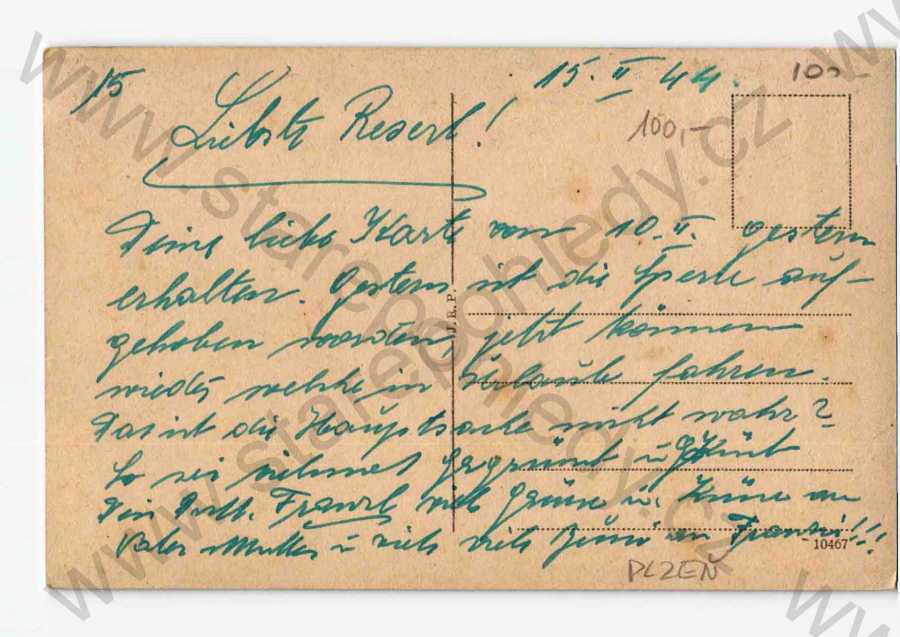 15
15. II 44.
100,-
100,-
Liebste Reserl!
Deine liebe Karte vom 10. II. gestern
erhalten. Gestern ist die Sperre auf-
gehoben worden, jetzt können
wieder welche in Urlaub fahren.
Das ist die Hauptsache nicht wahr?
So sei vielmals gegrüsst u. geküsst
Dein Franzl viel Grüsse u. Küsse an
Vater Mutter u viele viele Bussi an Franzi!!!
J.R.P.
10467
PLZEŇ
www.starepohledy.cz